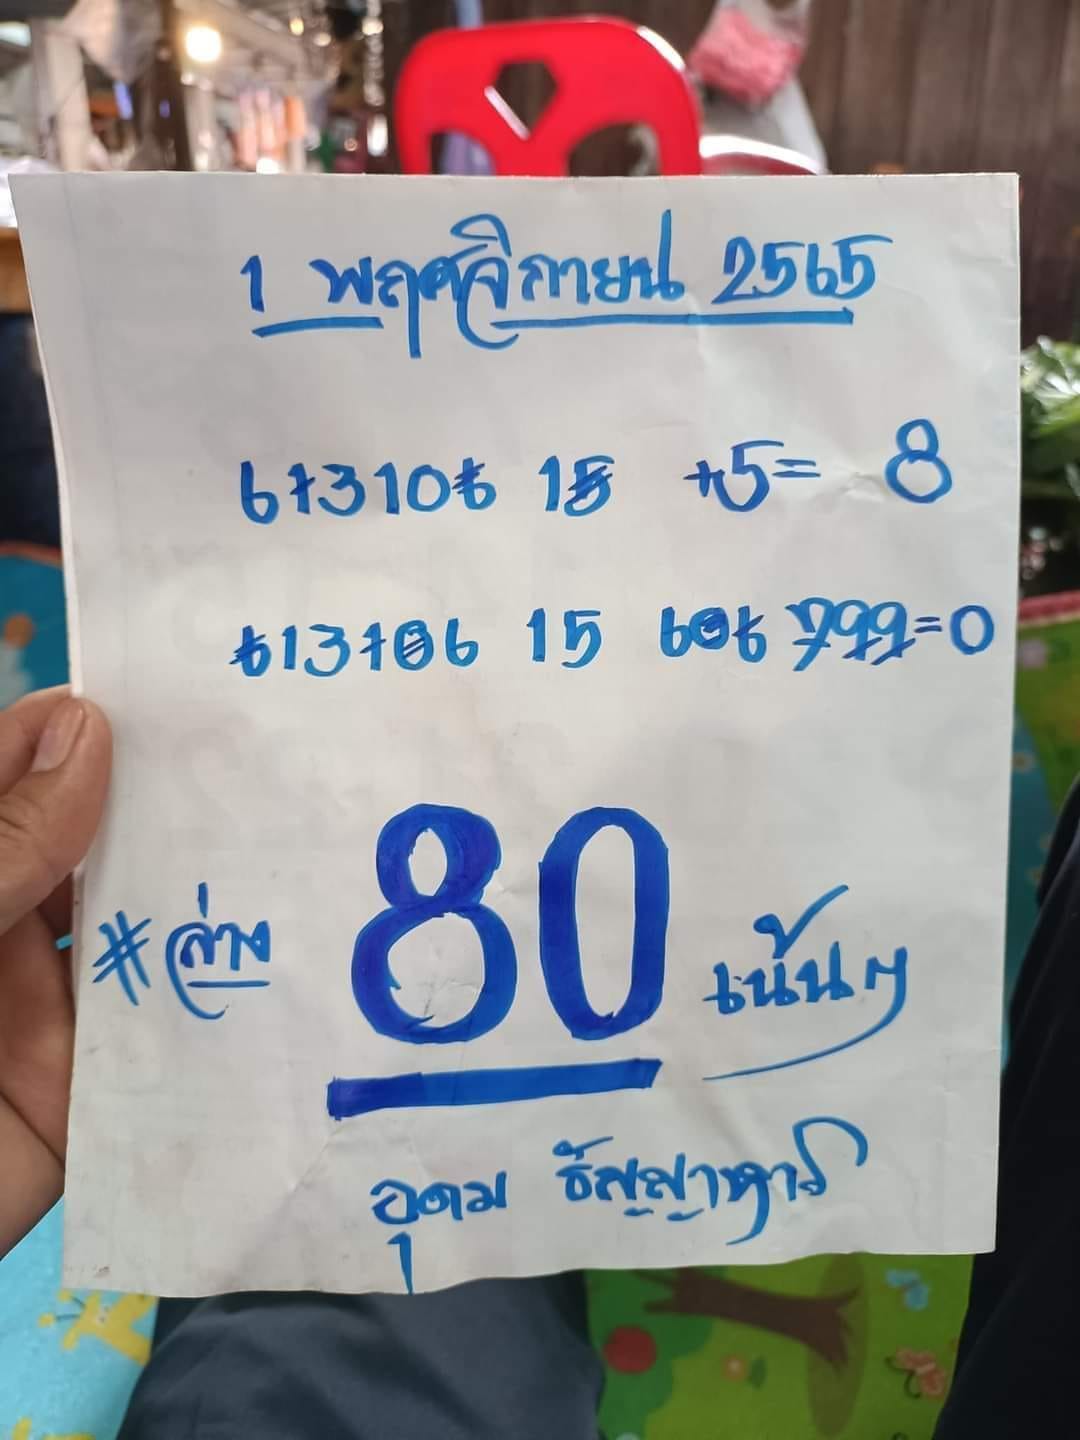 1 พฤศจิกายน 2565
613106 15 +5= 8
613106 15 606 799=0
#ล่าง 80 เน้นๆ
อุดม ธัญญาหาร